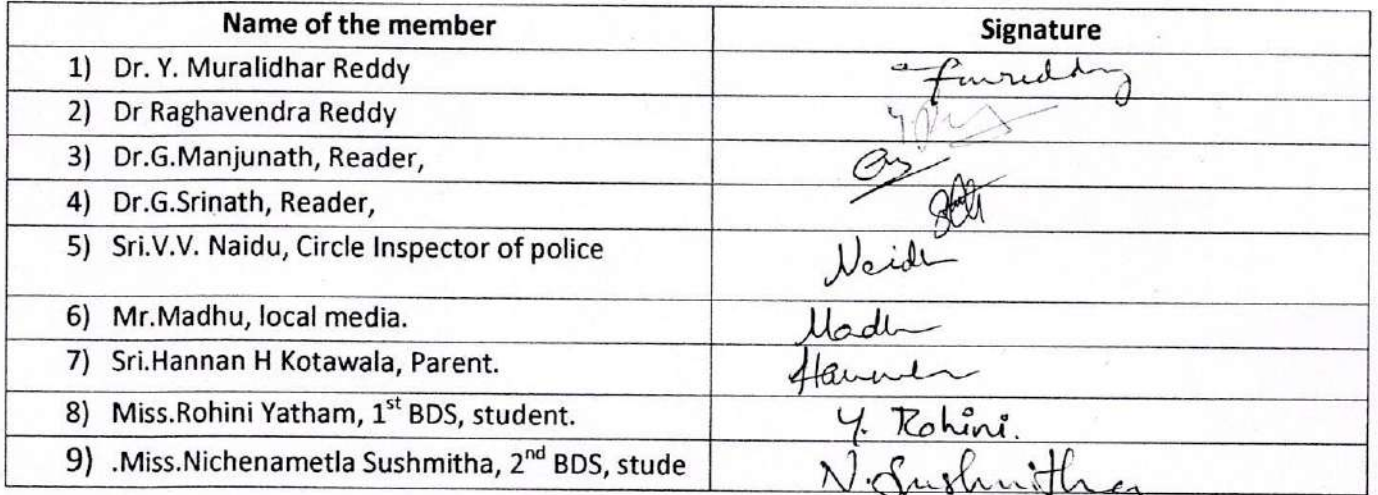 Name of the member Signature
1) Dr. Y. Muralidhar Reddy
2) Dr Raghavendra Reddy
3) Dr.G.Manjunath, Reader,
4) Dr.G.Srinath, Reader,
5) Sri.V.V. Naidu, Circle Inspector of police Naidu
6) Mr.Madhu, local media. Madhu
7) Sri.Hannan H Kotawala, Parent. Hannan
8) Miss.Rohini Yatham, 1st BDS, student. Y. Rohini.
9) .Miss.Nichenametla Sushmitha, 2nd BDS, stude N.Sushmitha